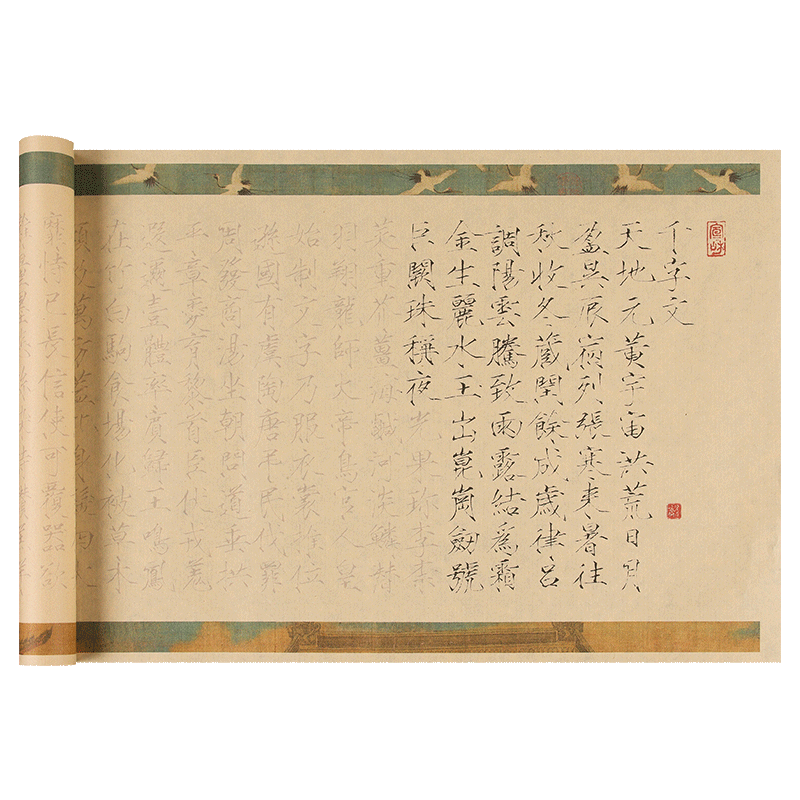 千字文
天地元黄宇宙洪荒日月
盈昃辰宿列張寒来暑往
秋收冬藏閏餘成歲律呂
調陽雲騰致雨露結爲霜
金生麗水玉出崑崗劔號
巨闕珠稱夜光果珍李柰
菜重芥薑海鹹河淡鱗潛
羽翔龍師火帝鳥官人皇
始制文字乃服衣裳推位
遜國有虞陶唐弔民伐罪
周發商湯坐朝問道垂拱
平章愛育黎首臣伏戎羌
遐邇壹體率賓歸王鳴鳳
在竹白駒食場化被草木
賴及萬方蓋此身髮四大
靡恃己長信使可覆器欲